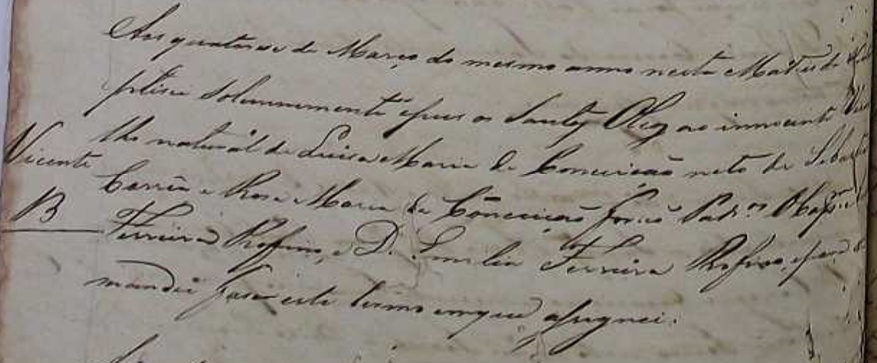 Aos quatorse de Março do mesmo anno nesta Matris de
ptisei solennemente e pus os Santos Oleos ao innocente
Vicente
lho natural de Luisa Maria da Conceicão neto de Sebastião
B
Corrêa e Rosa Maria da Conceicão forão Padr.os
Ferreira Rofino, e D. Emilia Ferreira Rofino, e para
mandei faser este termo em que assignei.